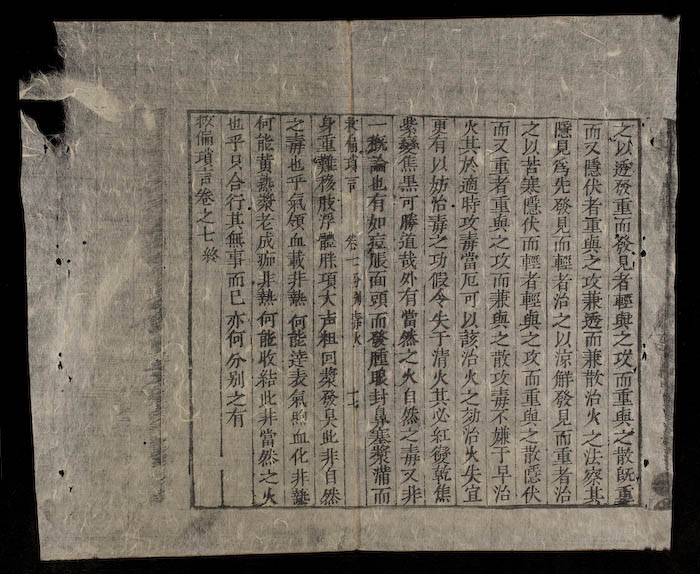 之以透發重而發見者輕與之攻而重與之散既重
而又隱伏者重與之攻兼透而兼散治火之法察其
隱見爲先發見而輕者治之以涼解發見而重者治
之以苦寒隱伏而輕者輕與之攻而重與之散隱伏
而又重者重與之攻而兼與之散攻毒不嫌于早治
火其於適時攻毒當厄可以該治火之功治火失宜
更有以妨治毒之功假令失于清火其必紅變乾焦
紫變焦黑可勝道哉外有當然之火自然之毒又非
一概論也有如痘脹面頭而發腫眼封鼻塞漿滿而
救偏瑣言 卷七分別毒火 十七
身重難移肢浮體胖項大声粗回漿發臭此非自然
之毒也乎氣領血載非熱何能逹表氣煦血化非熱
何能黄熟漿老成痂非熱何能收結此非當然之火
也乎只合行其無事而已亦何分别之有
救偏瑣言卷之七終